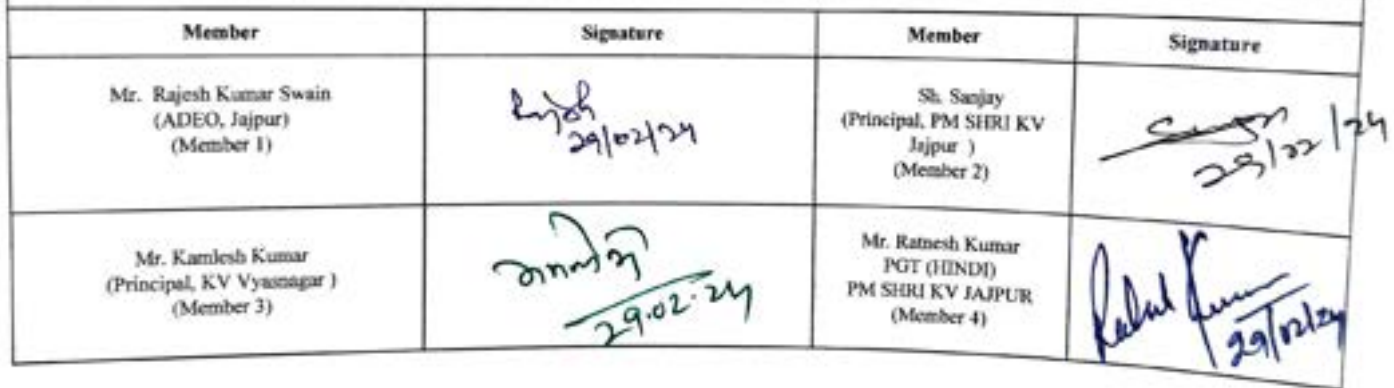 Member Signature Member Signature
Mr. Rajesh Kumar Swain
(ADEO, Jajpur)
(Member 1)
Rajesh
29/02/24
Sh. Sanjay
(Principal, PM SHRI KV
Jajpur )
(Member 2)
29/02/24
Mr. Kamlesh Kumar
(Principal, KV Vyasnagar )
(Member 3)
29.02.24
Mr. Ratnesh Kumar
PGT (HINDI)
PM SHRI KV JAJPUR
(Member 4)
Kumar
29/02/24